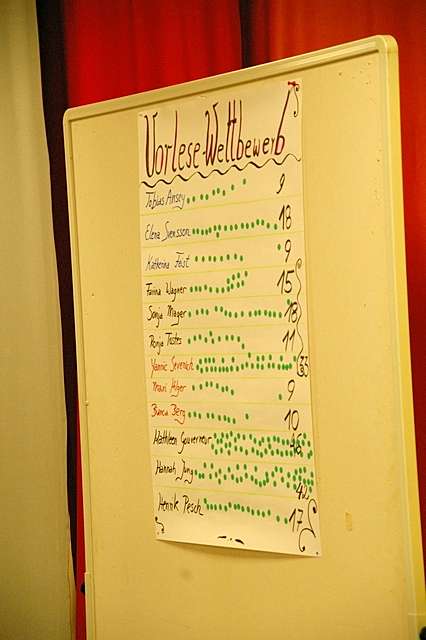 Vorlese-Wettbewerb
Tobias Ansey 9
Elena Svensson 18
Katherina Fast 9
Farina Wagner 15
Sonja Mager 18
Ronja Tastes 11
Yannic 33
Alger 9
Bianca Berg 10
Kathleen Gouverneur
Hannah Jung 42
Henrik Pesch 17